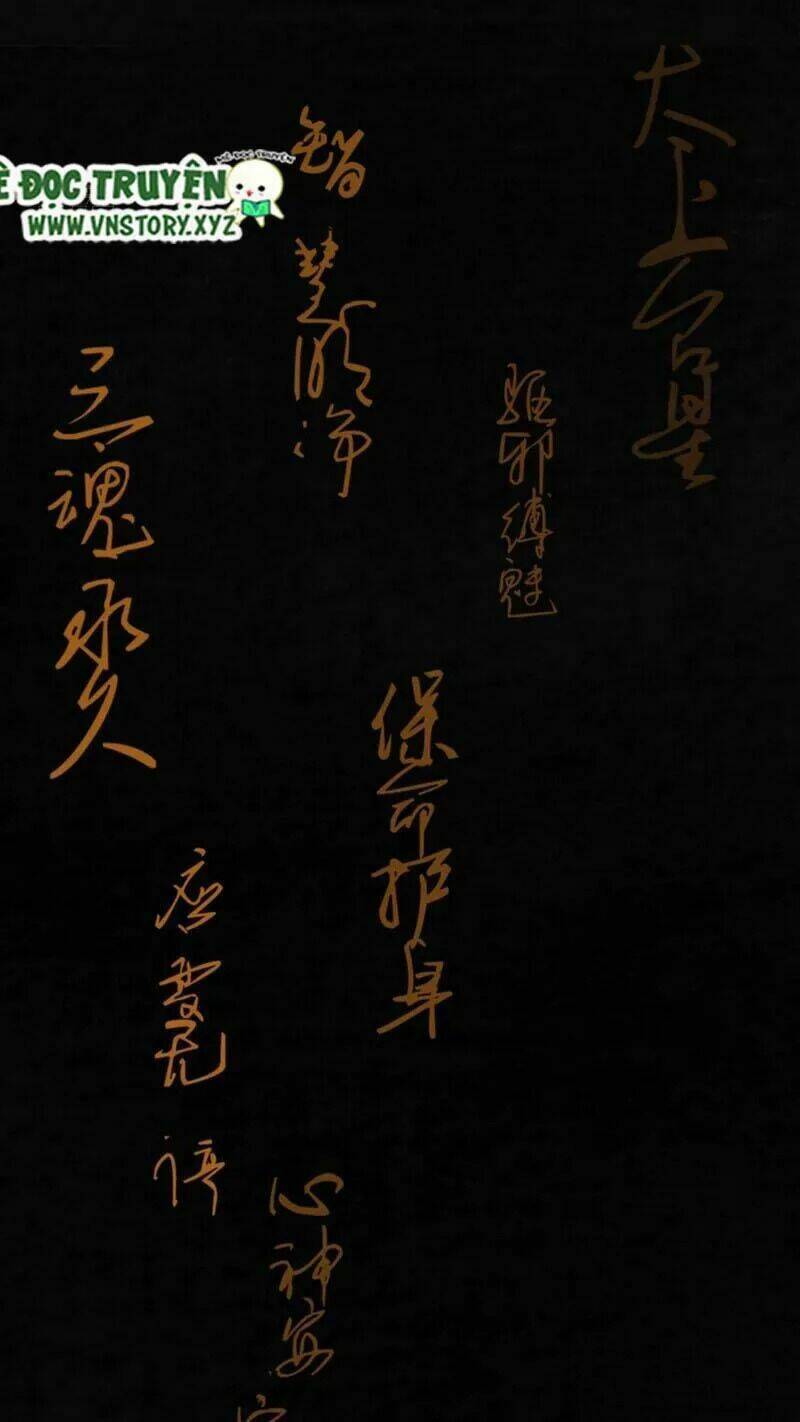 太上台星
驱邪缚魅
保命护身
智慧明净
心神安宁
三魂永久
应变无停
Ê ĐỌC TRUYỆN
MÊ ĐỌC TRUYỆN
WWW.VNSTORY.XYZ